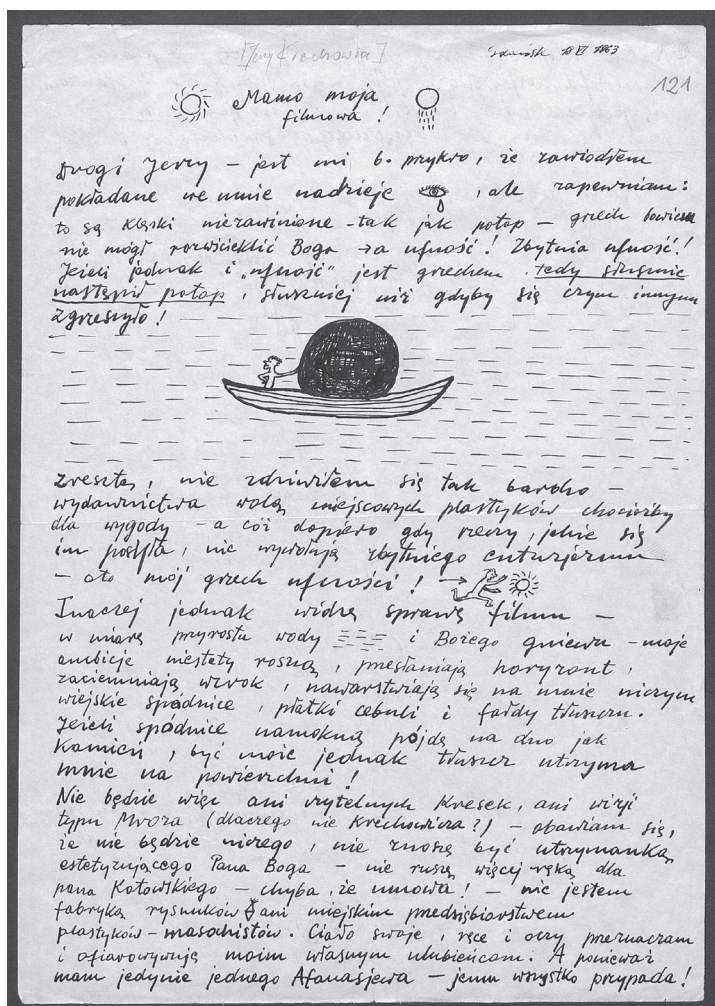 [Jerzy Krechowicz]
Gdańsk 18 VI 1963
121
Mamo moja
filmowa!
Drogi Jerzy – jest mi b. przykro, że zawiodłem
pokładane we mnie nadzieje , ale zapewniam:
to są klęski niezawinione – tak jak potop – grzech bowiem
nie mógł rozwścieklić Boga → a ufność! Zbytnia ufność!
Jeżeli jednak i „ufność” jest grzechem, tedy słusznie
nastąpił potop, słuszniej niż gdyby się czym innym
zgrzeszyło!
zresztą, nie zdziwiłem się tak bardzo –
wydawnictwa wolą miejscowych plastyków chociażby
dla wygody – a cóż dopiero gdy rzeczy, jakie się
im posyła, nie wywołują zbytniego entuzjazmu
– oto mój grzech ufności! →
Inaczej jednak widzę sprawę filmu –
w miarę przyrostu wody i Bożego gniewu – moje
ambicje niestety rosną, przesłaniają horyzont,
zaciemniają wzrok, nawarstwiają się na mnie niczym
wiejskie spódnice, płatki cebuli i fałdy tłuszczu.
Jeżeli spódnice namokną pójdę na dno jak
kamień, być może jednak tłuszcz utrzyma
mnie na powierzchni!
Nie będzie więc ani czytelnych kresek, ani wizji
typu Mroza (dlaczego nie Krechowicza?) – obawiam się,
że nie będzie niczego, nie znoszę być utrzymanką
estetyzującego Pana Boga – nie ruszę więcej ręką dla
pana Kotowskiego – chyba, że umowa! – nie jestem
fabryką rysunków ani miejskim przedsiębiorstwem
plastyków – masochistów. Ciało swoje, ręce i oczy przeznaczam
i ofiarowywuję moim własnym ulubieńcom. A ponieważ
mam jedynie jednego Afanasjewa – jemu wszystko przypada!